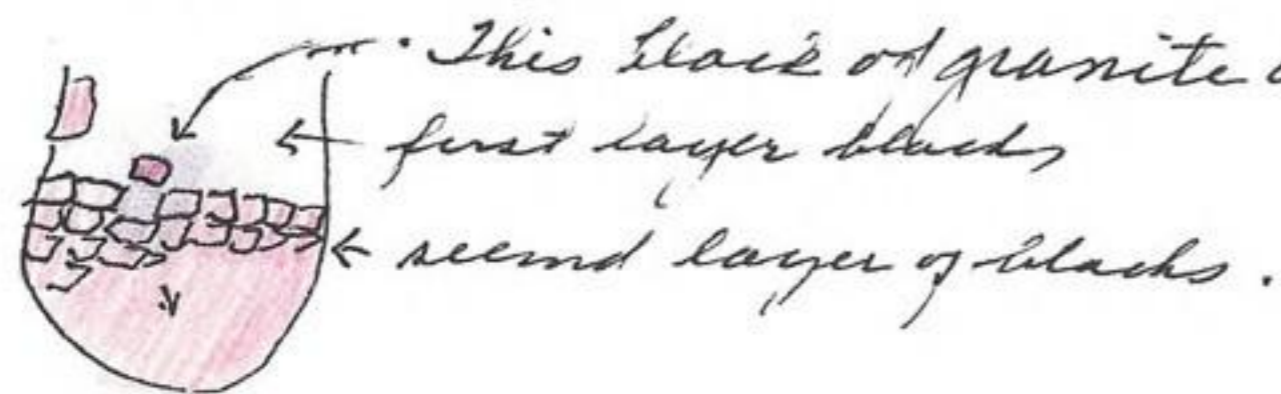 This block of granite
first layer blocks
second layer of blocks.